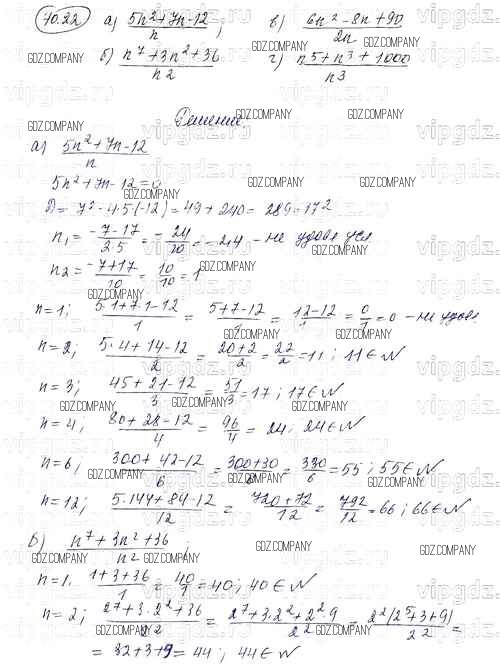 10.22 а) (5n² + 7n - 12)/n ; в) (6n² - 8n + 90)/2n
б) (n⁷ + 3n² + 36)/n² г) (n⁵ + n³ + 1000)/n³
Решение
а) (5n² + 7n - 12)/n
5n² + 7n - 12 = 0
D = 7² - 4·5·(-12) = 49 + 240 = 289 = 17²
n₁ = (-7-17)/(2·5) = -24/10 = -2,4 - не удов усл
n₂ = (-7+17)/10 = 10/10 = 1
n = 1; (5·1+7·1-12)/1 = (5+7-12)/1 = (12-12)/1 = 0/1 = 0 - не удов
n = 2; (5·4+14-12)/2 = (20+2)/2 = 22/2 = 11; 11 ∈ N
n = 3; (45+21-12)/3 = 51/3 = 17; 17 ∈ N
n = 4; (80+28-12)/4 = 96/4 = 24; 24 ∈ N
n = 6; (300+42-12)/6 = (300+30)/6 = 330/6 = 55; 55 ∈ N
n = 12; (5·144+84-12)/12 = (720+72)/12 = 792/12 = 66; 66 ∈ N
б) (n⁷ + 3n² + 36)/n² ;
n = 1. (1+3+36)/1 = 40/1 = 40; 40 ∈ N
n = 2; (2⁷+3·2²+36)/2² = (2⁷+3·2²+2²·9)/2² = 2²(2⁵+3+9)/2² =
= 32+3+9 = 44; 44 ∈ N
GDZ.COMPANY
vipgdz.ru